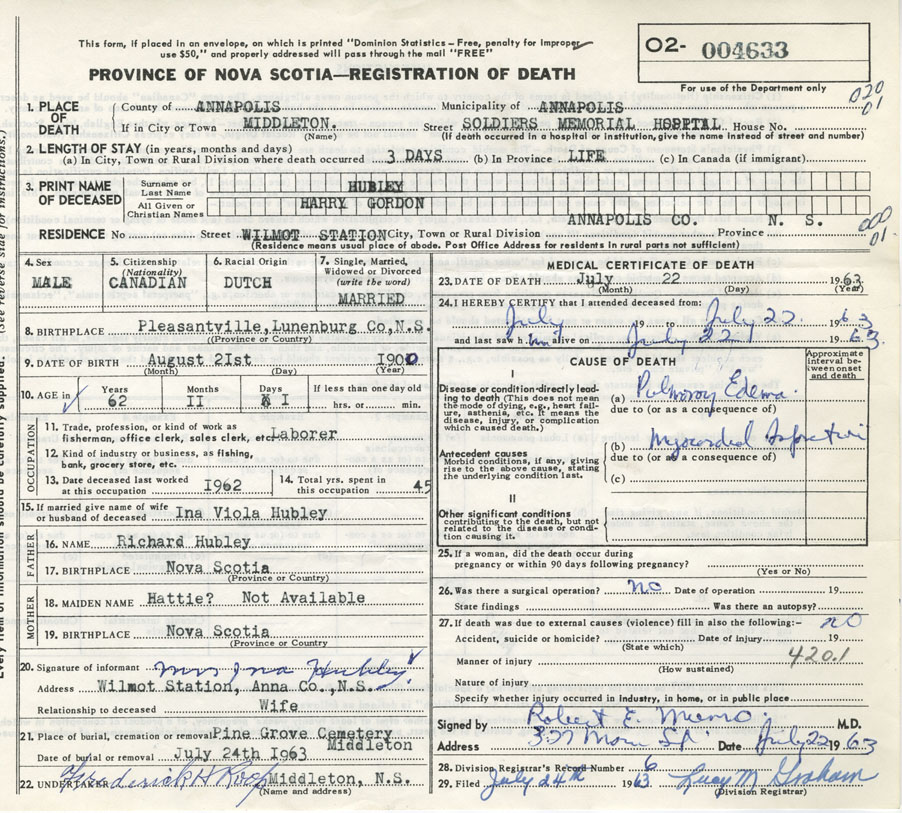 This form, if placed in an envelope, on which is printed "Dominion Statistics - Free, penalty for improper
use $50," and properly addressed will pass through the mail "FREE"
O2- 004633
PROVINCE OF NOVA SCOTIA—REGISTRATION OF DEATH
For use of the Department only
020
01
1. PLACE OF DEATH County of ANNAPOLIS Municipality of ANNAPOLIS
If in City or Town MIDDLETON. Street SOLDIERS MEMORIAL HOSPITAL House No.
(Name) (If death occurred in a hospital or institution, give the name instead of street and number)
2. LENGTH OF STAY (in years, months and days)
(a) In City, Town or Rural Division where death occurred 3 DAYS (b) In Province LIFE (c) In Canada (if immigrant)
3. PRINT NAME OF DECEASED Surname or Last Name HUBLEY
All Given or Christian Names HARRY GORDON
ANNAPOLIS CO. N. S.
000
01
RESIDENCE No Street WILMOT STATION City, Town or Rural Division Province
(Residence means usual place of abode. Post Office Address for residents in rural parts not sufficient)
4. Sex MALE
5. Citizenship (Nationality) CANADIAN
6. Racial Origin DUTCH
7. Single, Married, Widowed or Divorced (write the word) MARRIED
8. BIRTHPLACE Pleasantville, Lunenburg Co, N.S.
(Province or Country)
9. DATE OF BIRTH August 2Ist I900
(Month) (Day) (Year)
10. AGE in Years 62 Months II Days I If less than one day old hrs. or min.
OCCUPATION
11. Trade, profession, or kind of work as fisherman, office clerk, sales clerk, etc. Laborer
12. Kind of industry or business, as fishing, bank, grocery store, etc.
13. Date deceased last worked at this occupation I962
14. Total yrs. spent in this occupation 45
15. If married give name of wife or husband of deceased Ina Viola Hubley
FATHER
16. NAME Richard Hubley
17. BIRTHPLACE Nova Scotia
(Province or Country)
MOTHER
18. MAIDEN NAME Hattie? Not Available
19. BIRTHPLACE Nova Scotia
(Province or Country
20. Signature of informant Mrs Ina Hubley
Address Wilmot Station, Anna Co., N.S.
Relationship to deceased Wife
21. Place of burial, cremation or removal Pine Grove Cemetery
Middleton
Date of burial or removal July 24th I963
22. UNDERTAKER Frederick H Roop Middleton, N.S.
(Name and address)
MEDICAL CERTIFICATE OF DEATH
23. DATE OF DEATH July 22 1963
(Month) (Day) (Year)
24. I HEREBY CERTIFY that I attended deceased from:
July 19 to July 22 1963
and last saw him alive on July 22 1963
CAUSE OF DEATH
Approximate interval between onset and death
I
Disease or condition directly leading to death (This does not mean the mode of dying, e.g., heart failure, asthenia, etc. It means the disease, injury, or complication which caused death.)
(a) Pulmonary Edema
due to (or as a consequence of)
Antecedent causes
Morbid conditions, if any, giving rise to the above cause, stating the underlying condition last.
(b) Myocardial Infarction
due to (or as a consequence of)
(c)
II
Other significant conditions contributing to the death, but not related to the disease or condition causing it.
25. If a woman, did the death occur during pregnancy or within 90 days following pregnancy?
(Yes or No)
26. Was there a surgical operation? no Date of operation 19
State findings Was there an autopsy?
27. If death was due to external causes (violence) fill in also the following:- no
Accident, suicide or homicide? Date of injury 19
(State which)
420.1
Manner of injury
(How sustained)
Nature of injury
Specify whether injury occurred in industry, in home, or in public place
Signed by Robert E. M.D.
Address Date July 22 1963
28. Division Registrar's Record Number 6
29. Filed July 24th 1963 Lucy M Graham
(Division Registrar)
(See reverse side for instructions.)
Every item of information should be carefully supplied.